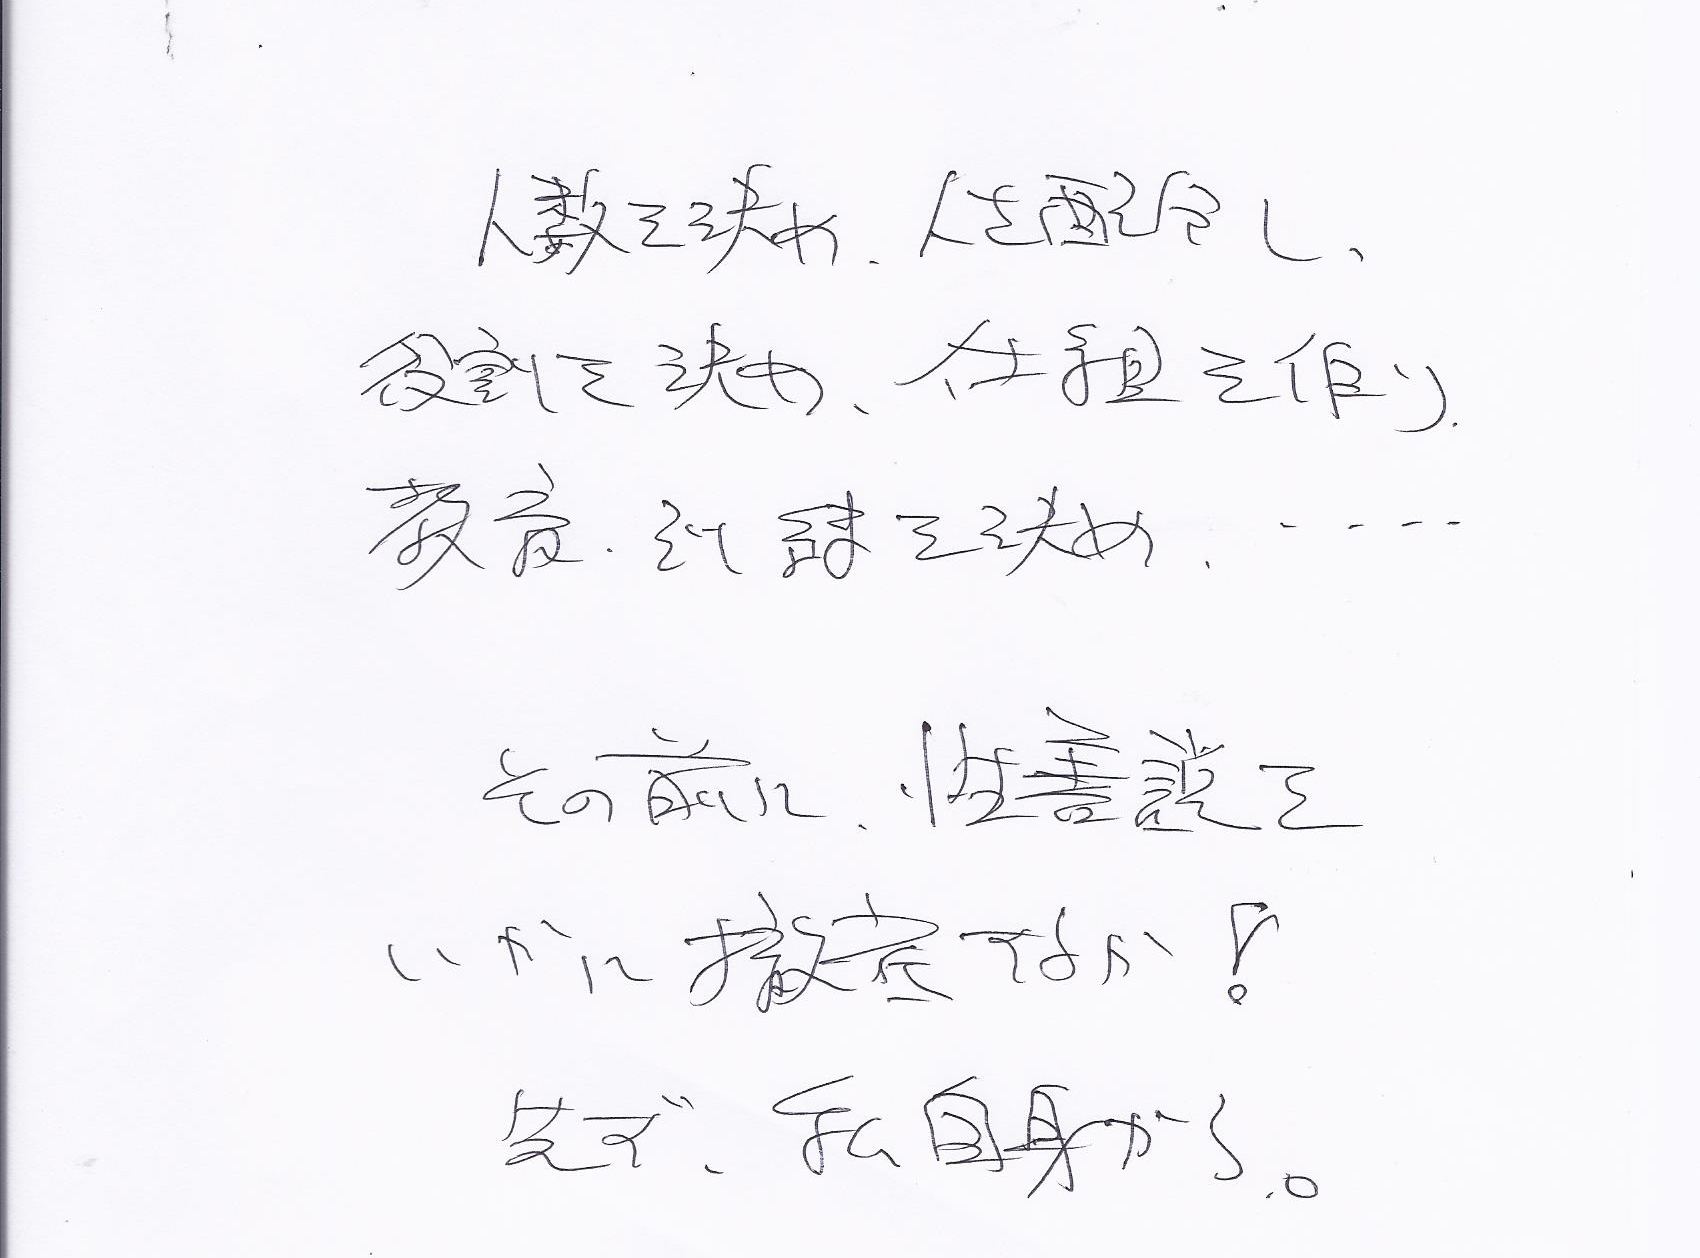 人数を決め、人を配分し、
役割を決め、仕組を作り、
教育・訓練を決め、・・・・
その前に、性善説を
いかに撤底するか!
先ず、私自身から。